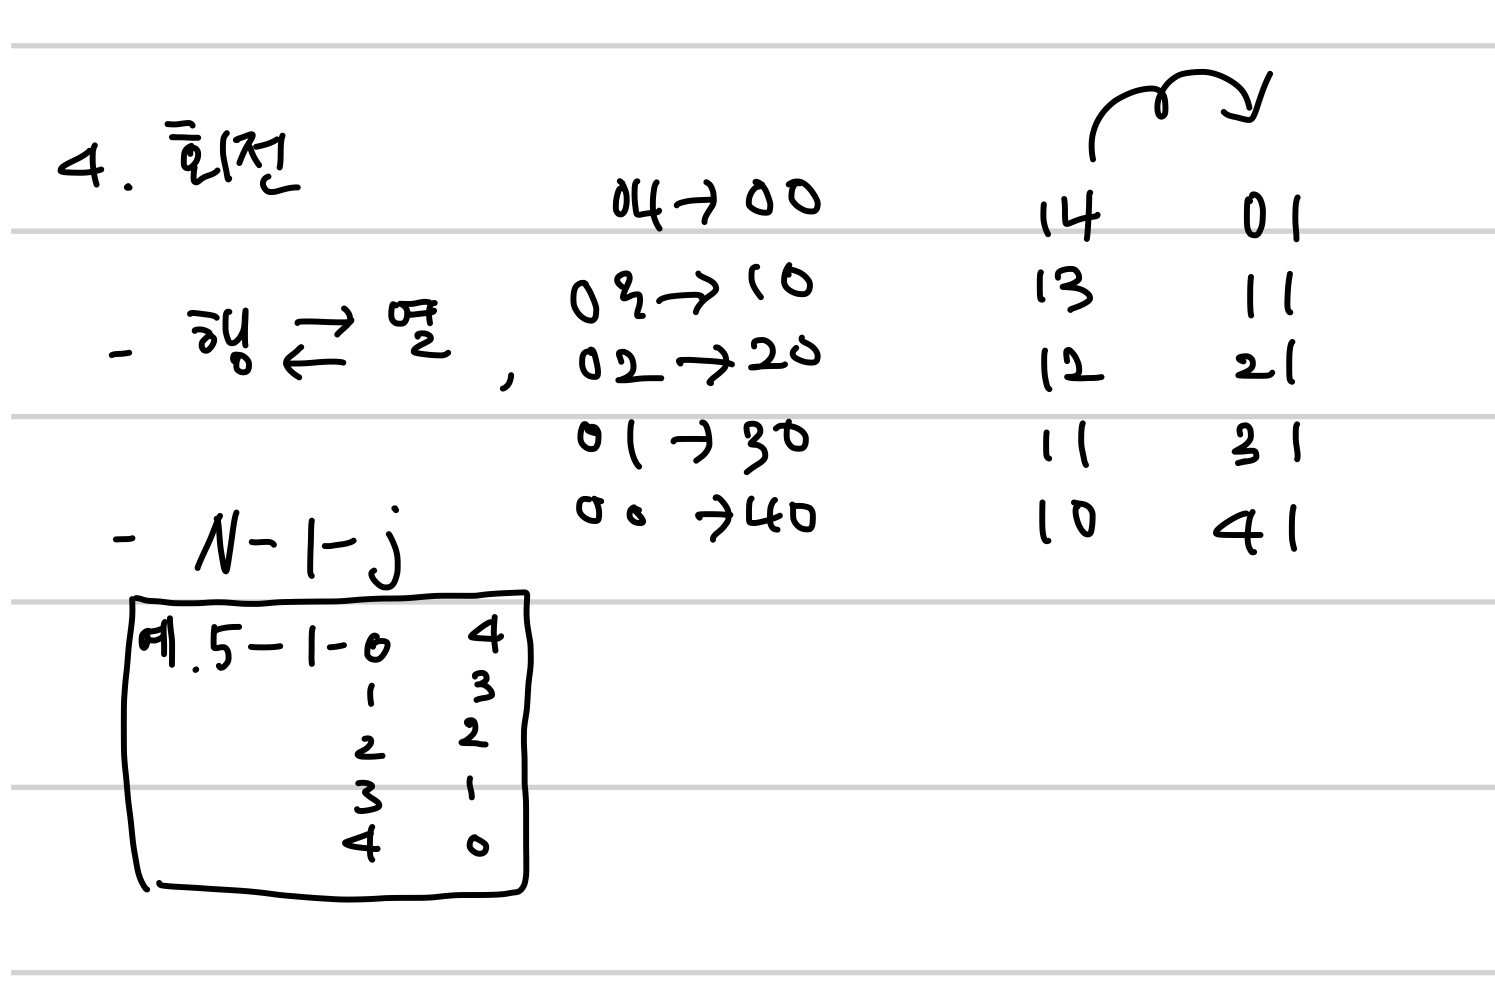 4. 회전
- 행 ⇄ 열 ,
04 → 00
03 → 10
02 → 20
01 → 30
00 → 40
14 01
13 11
12 21
11 31
10 41
- N-1-j
예. 5-1-0 4
1 3
2 2
3 1
4 0